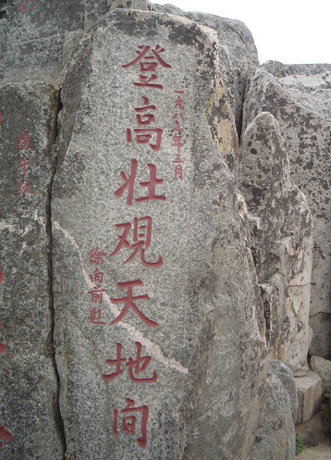 登高壮观天地间
一九八六年三月
徐向前题